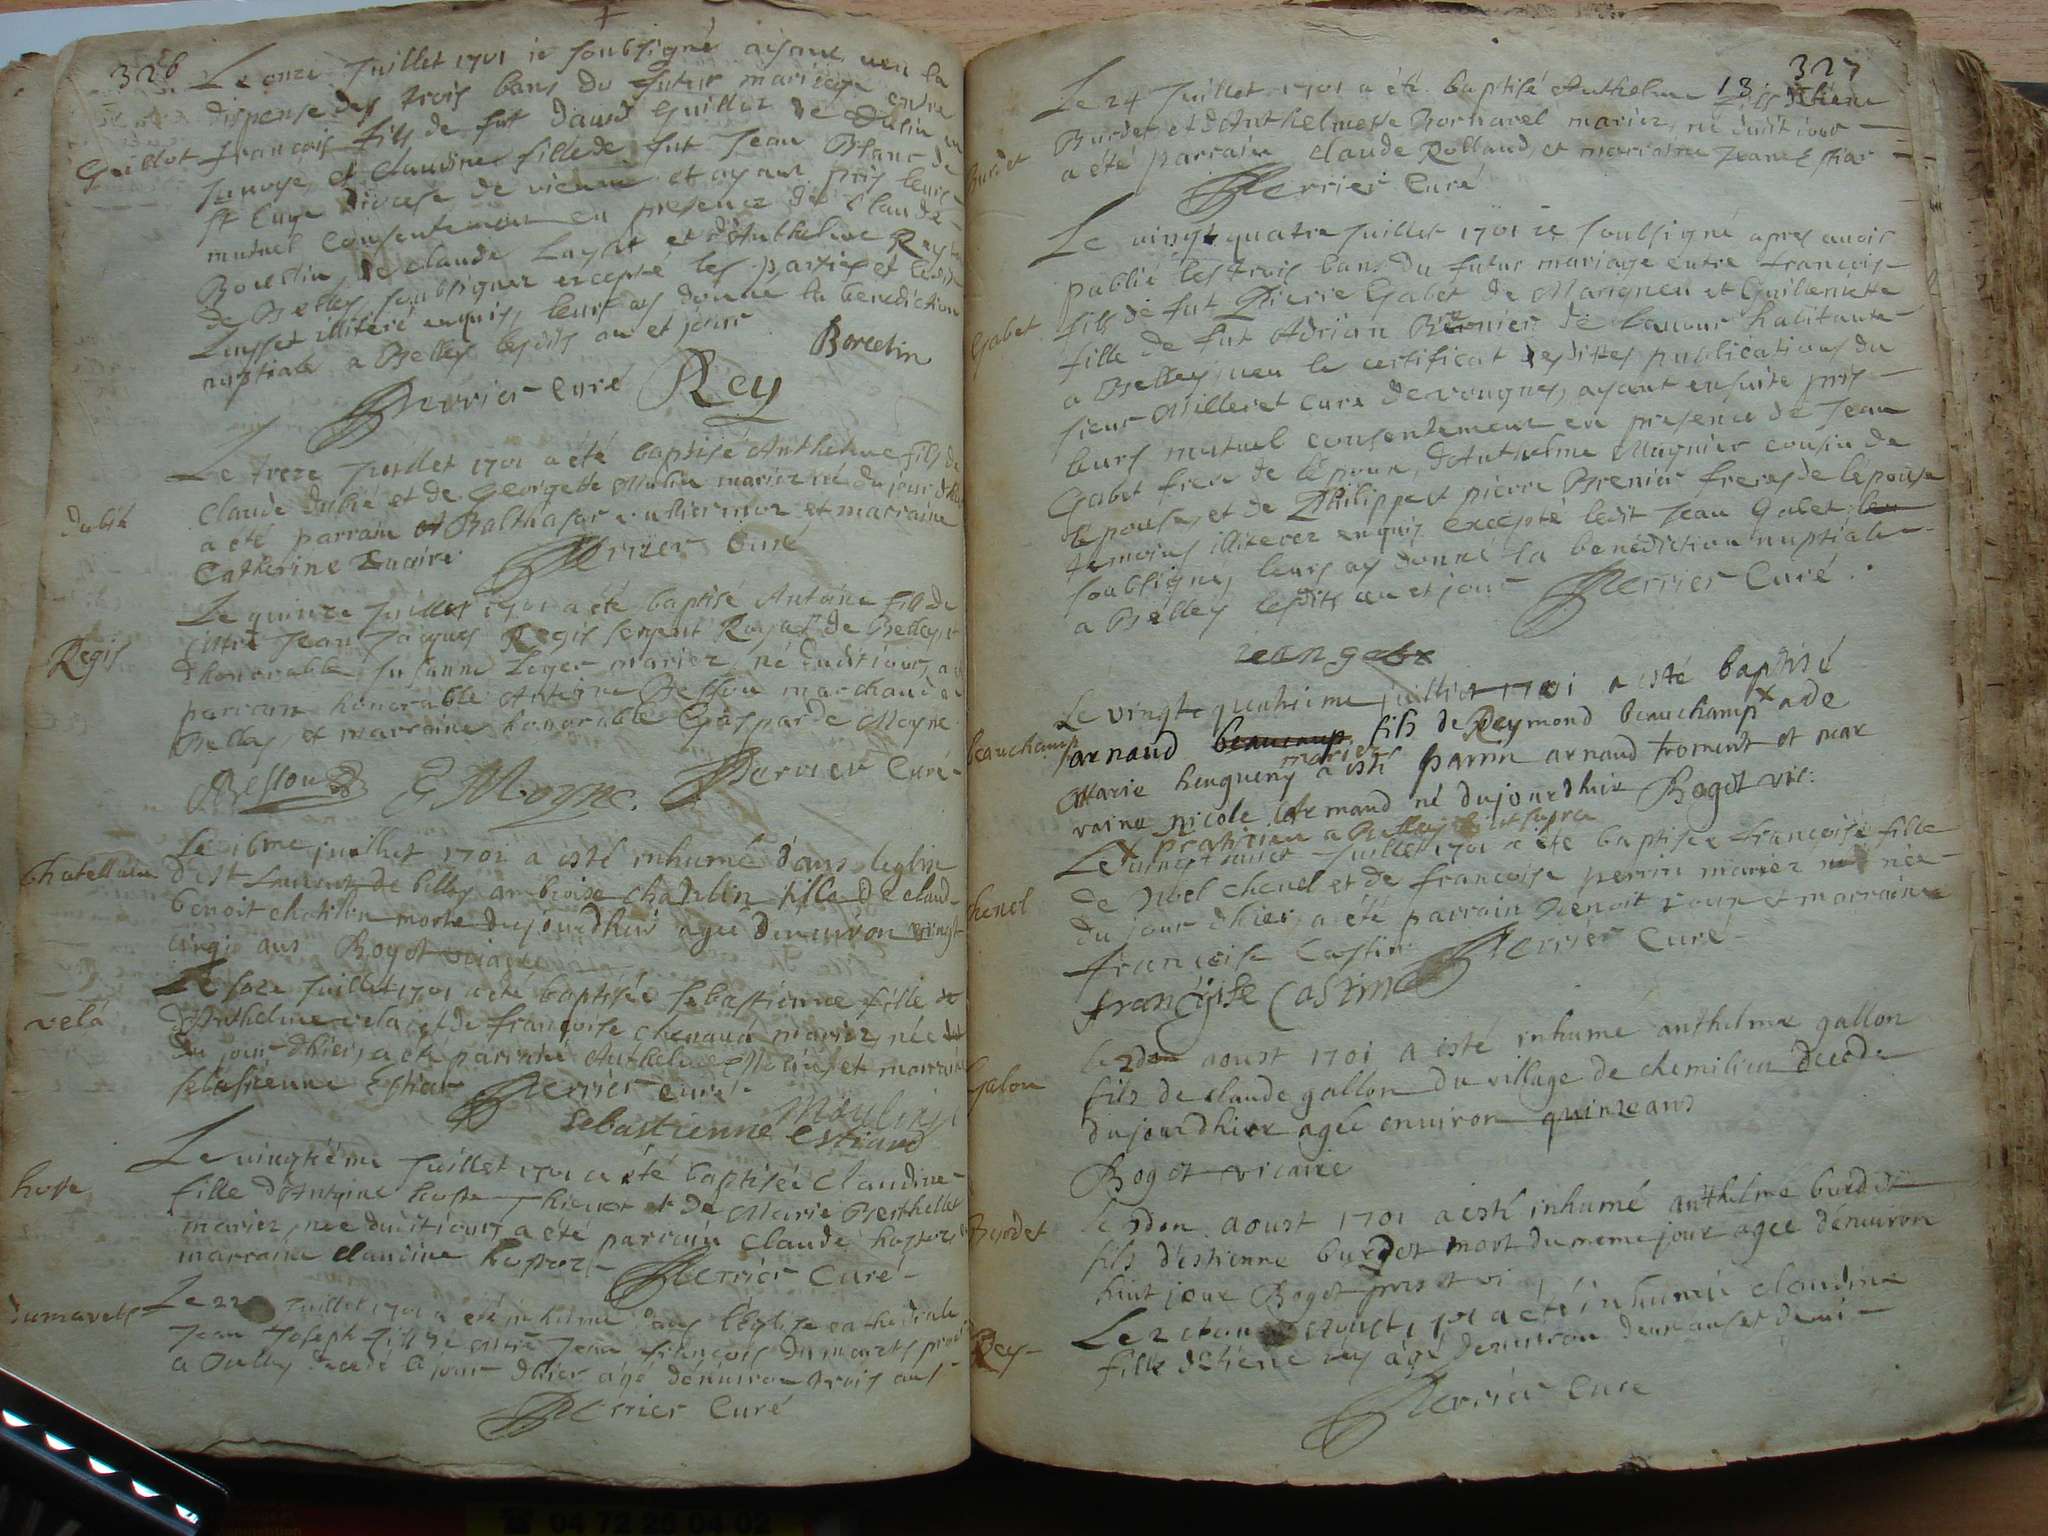 326
Le onze Juillet 1701 ie soubsigné ayant veu la
dispense des trois bans du futur mariage entre
Guillot
François fils de fut David Guillot de Dulin en
Savoye, et Claudine fille de fut Jean Blanc de
diocese de vienne et ayant pris leurs
mutuel consentement en presence de Claude
de Claude et d'Anthelme Rey
de Belley soubsignez excepté les parties et ledit
illiteré enquis, leurs ay donné la benediction
nuptiale a Belley lesdits an et jour
Borcetin
Perrier Curé Rey
Le treze Juillet 1701 a été baptisé Anthelme fils de
Claude dubié et de Georgette Mulin mariez né du jour d'hier
a été parrain Balthasar et marraine
Catherine
Perrier Curé
Le quinze Juillet 1701 a été baptisé Antoine fils de
Regis
Jean Jacques Regis sergent Royal de Belley et
d'honorable Susanne Loger mariez, né dudit jour, a
parrain honorable Antoine Besson marchand a
Belley et marraine honorable Gasparde Moyne
Besson G Moyne. Perrier Curé
Le 16me juillet 1701 a esté inhumé dans leglise
de belley ambroise chatilin fille de claude
benoit chatilon morte dujourdhuir agée denuiron vingt
cinq ans Bogot vicaire
Le seze Juillet 1701 a été baptisée Sebastienne fille
vela
d'Anthelme vela et de françoise chenavá mariez, née
du jour d'hier, a été parrain Anthelme Molin et marraine
Sebastienne Estiar Perrier curé
Moulin
Sebastienne estiard
Le vingtiéme Juillet 1701 a été baptisée Claudine
hoste
fille d'Antoine hoste et de Marie Berthellet
mariez, née dudit jour, a été parrain Claude hoste et
marraine Claudine hoste
Perrier Curé
dumarets
Le 22 Juillet 1701 a été inhumé dans l'église cathedrale
Jean Joseph fils de Jean françois dumarets
a Belley decedé le jour d'hier agé d'énuiron trois ans
Perrier Curé
327
13
Le 24 Juillet 1701 a été baptisé Anthelme fils d'Etiene
Burdet
Burdet et d'Anthelmette Bornarel mariez, né dudit jour
a été parrain Claude Rolland, et marraine Jeane Estiar
Perrier Curé
Le vingt quatre Juillet 1701 ie soubsigné apres avoir
publié les trois bans du futur mariage entre françois
Gabet
fils de fut Pierre Gabet de Marigneu et Guilemette
fille de fut Adrian Brenier de Lavour habitante
a Belley, veu le certificat desdittes publications du
sieur Milleret curé de vougnes, ayant ensuite pris
leurs mutuel consentement en presence de Jean
Gabet frere de l'époux, d'Anthelme Mugnier cousin de
l'épouse, et de Philippe et pierre Brenier freres de l'épouse
temoins illiterez enquis excepté ledit Jean Gabet
soubsigné, leurs ay donné la benediction nuptiale
a Belley lesdits an et jour Perrier Curé
iean gabet
Le vingte quatrieme juillet 1701 a esté baptisé
beauchamp
arnaud fils de Reymond beauchamp x a de
marie hengueny mariez a esté parrin arnaud froment et mar
raine nicole Armand né dujourdhuir Bogot vic:
x praticien a Belley ut supra
Le vingt Juillet 1701 a été baptisée françoise fille
chenel
de chenel et de francoise perrin mariez née
du jour d'hier, a été parrain Benoit roux et marraine
françoise Castin Perrier Curé
françoise Castin
le 2don aoust 1701 a esté inhumé anthelme gallon
Galon
fils de claude gallon du village de chemilieu decede
dujourdhier agée enuiron quinze ans
Bogot vicaire
le 2don aoust 1701 a esté inhumé anthelme burdet
Burdet
fils d'estienne burdet mort du meme jour agee dénuiron
huit jour Bogot
Le 2 Aoust 1701 a été inhumée claudine
Rey
fille d'Etiene rey âgé denuiron deux ans et demi
Perrier Cure
04 72 26 04 02